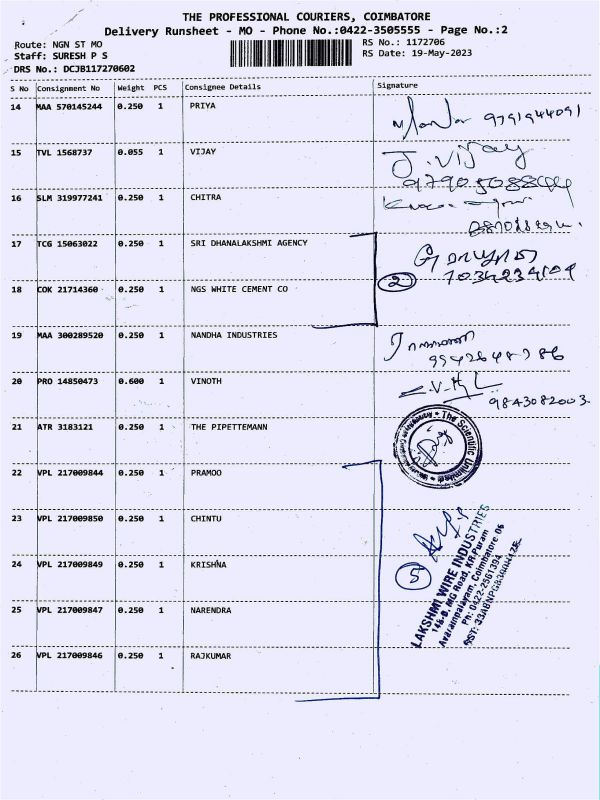 THE PROFESSIONAL COURIERS, COIMBATORE
Delivery Runsheet - MO - Phone No.:0422-3505555 - Page No.:2
Route: NGN ST MO
RS No.: 1172706
Staff: SURESH P S
RS Date: 19-May-2023
DRS No.: DCJB117270602
S No Consignment No Weight PCS Consignee Details Signature
14 MAA 570145244 0.250 1 PRIYA 9791944091
15 TVL 1568737 0.055 1 VIJAY J. Vijay
16 SLM 319977241 0.250 1 CHITRA
17 TCG 15063022 0.250 1 SRI DHANALAKSHMI AGENCY
2
18 COK 21714360 0.250 1 NGS WHITE CEMENT CO
19 MAA 300289520 0.250 1 NANDHA INDUSTRIES
20 PRO 14850473 0.600 1 VINOTH
9843082003
21 ATR 3183121 0.250 1 THE PIPETTEMANN
The Scientific
22 VPL 217009844 0.250 1 PRAMOO
23 VPL 217009850 0.250 1 CHINTU
24 VPL 217009849 0.250 1 KRISHNA
5
LAKSHMI WIRE INDUSTRIES
146-B, MG Road, KR.Puram
Avarampalayam, Coimbatore 06
Ph: 0422-2561394
25 VPL 217009847 0.250 1 NARENDRA
26 VPL 217009846 0.250 1 RAJKUMAR